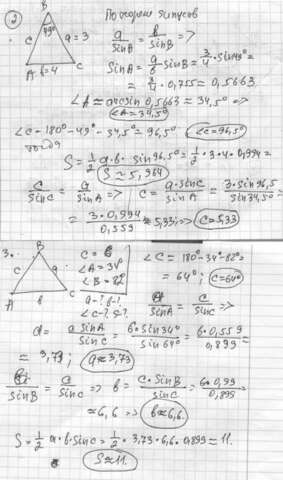 2 B По теореме синусов
49°
c a = 3 a/sinA = b/sinB =>
A b=4 C SinA = a/b · sinB = 3/4 · sin49° =
= 3/4 · 0,755 = 0,5663
∠A = arcsin 0,5663 ≈ 34,5° =>
∠A = 34,5°
∠C = 180° - 49° - 34,5° = 96,5° ∠C = 96,5°
тогда
S = 1/2 a·b· sin 96,5° = 1/2 · 3 · 4 · 0,994 =
S ≈ 5,964
c/sinC = a/sinA => c = a·sinC/sinA = 3·sin96,5/sin34,5° =
= 3·0,994/0,559 ≈ 5,33 => c = 5,33
3. B c = 6 ∠C = 180° - 34° - 82° =
c a ∠A = 34° = 64°; C = 64°
∠B = 82°
A b C a-? b-? a/sinA = c/sinC =>
∠C-? S-?
a = a sinA/sinC = 6·sin34°/sin64° = 6·0,559/0,899 =
≈ 3,73; a ≈ 3,73
b/sinB = c/sinC => b = c·sinB/sinC = 6·0,99/0,899 =
≈ 6,6 => b ≈ 6,6
S = 1/2 a·b·sinC = 1/2 · 3,73 · 6,6 · 0,899 ≈ 11.
S ≈ 11.